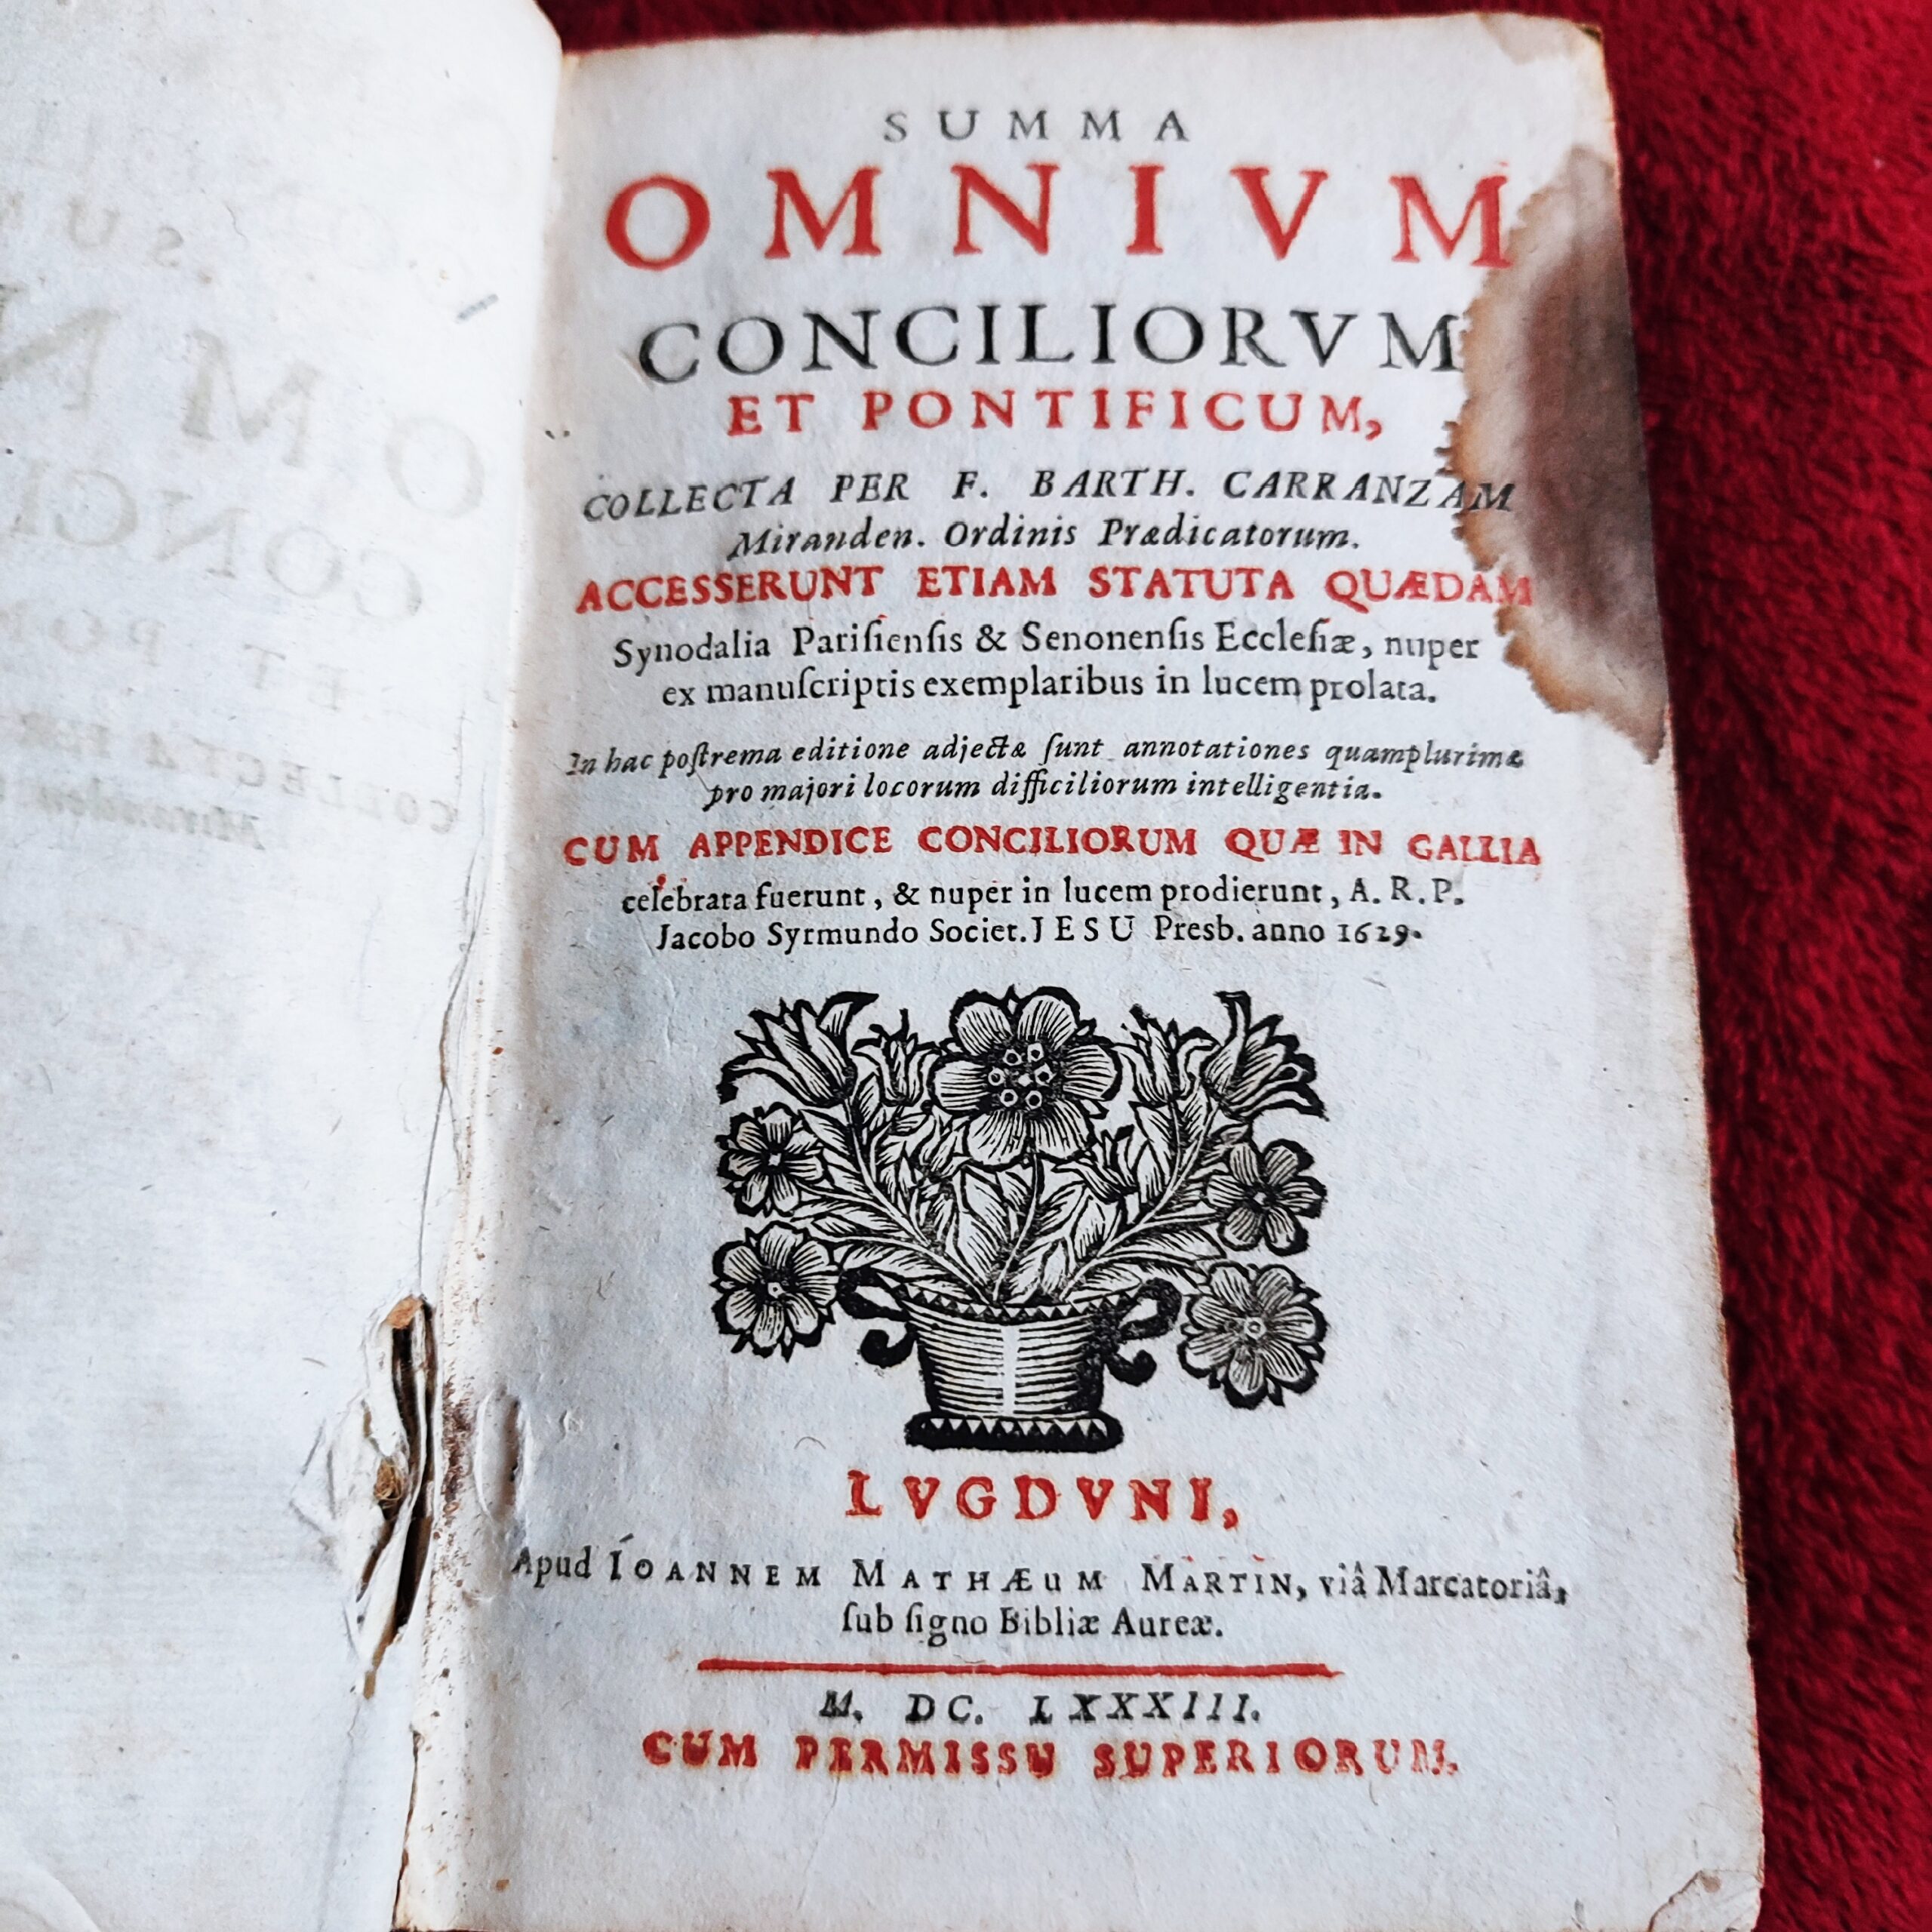 SUMMA
OMNIVM
CONCILIORVM
ET PONTIFICUM,
COLLECTA PER F. BARTH. CARRANZAM
Miranden. Ordinis Prædicatorum.
ACCESSERUNT ETIAM STATUTA QUÆDAM
Synodalia Pariſienſis & Senonenſis Eccleſiæ, nuper
ex manuſcriptis exemplaribus in lucem prolata.
In hac poſtrema editione adjectæ ſunt annotationes quamplurimæ
pro majori locorum difficiliorum intelligentia.
CUM APPENDICE CONCILIORUM QUÆ IN GALLIA
celebrata fuerunt, & nuper in lucem prodierunt, A. R. P.
Jacobo Syrmundo Societ. JESU Presb. anno 1629.
LVGDVNI,
Apud IOANNEM MATHÆUM MARTIN, viâ Marcatoriâ,
ſub ſigno Bibliæ Aureæ.
M. DC. LXXXIII.
CUM PERMISSU SUPERIORUM.